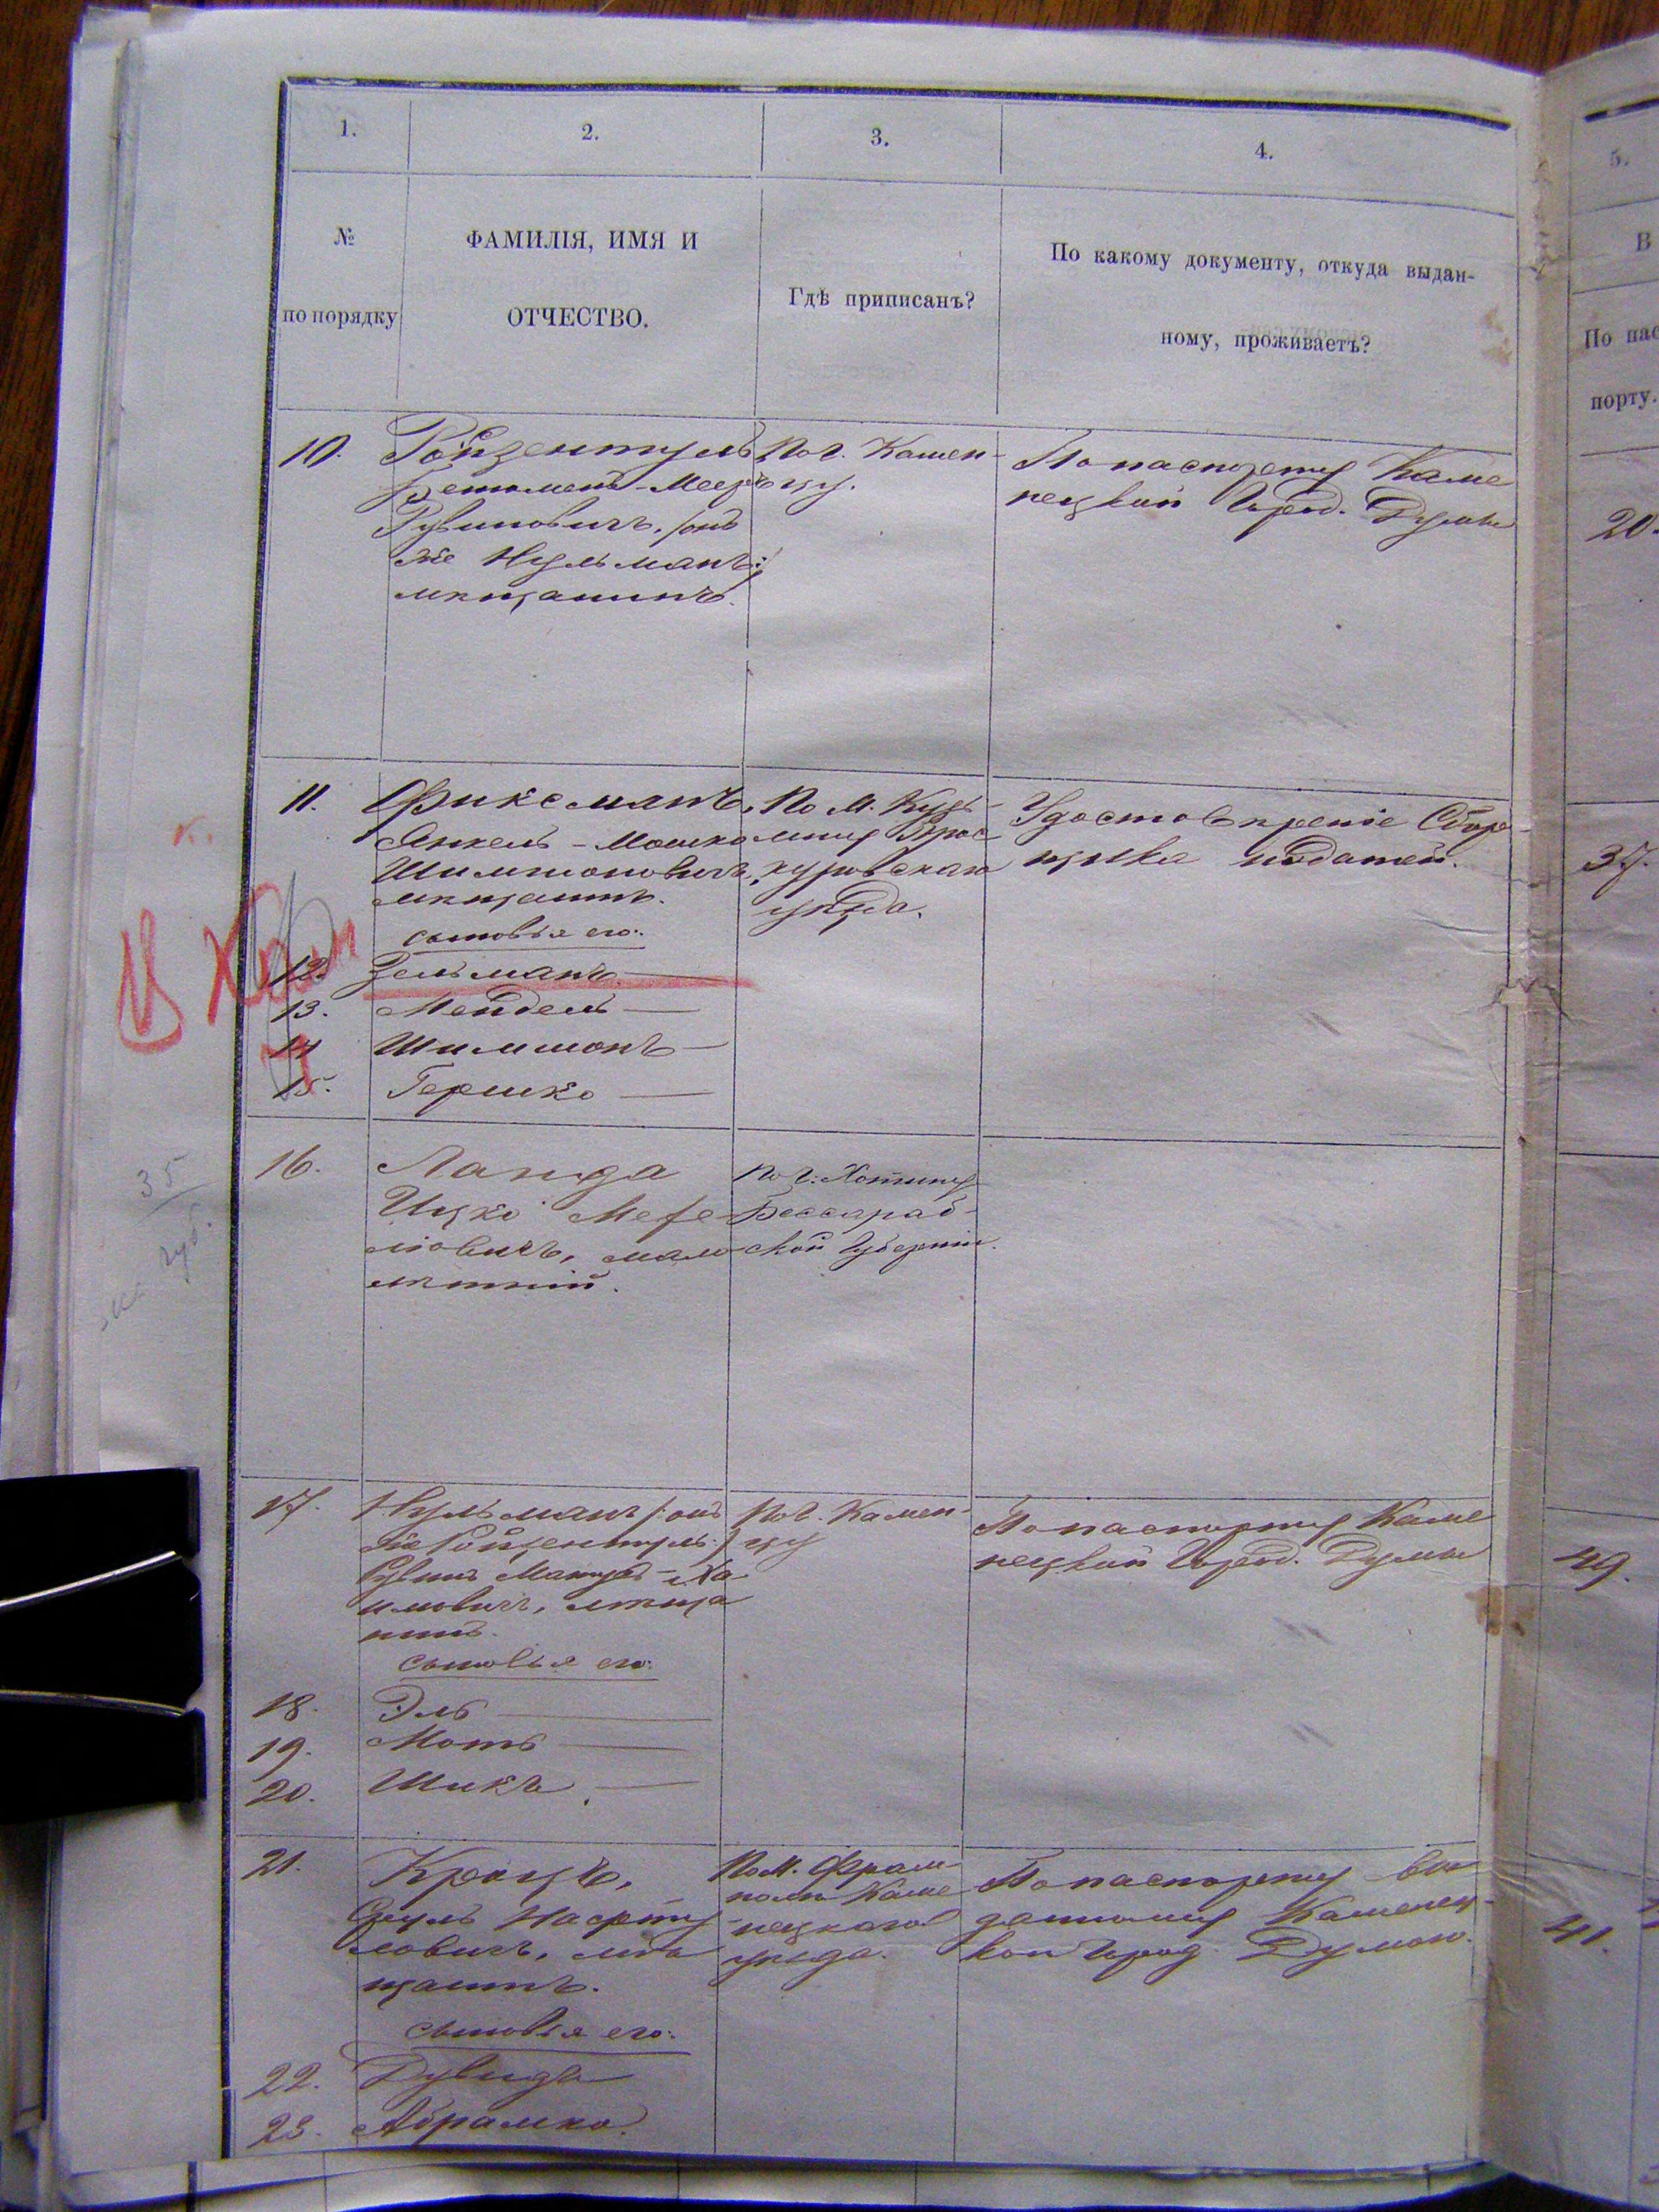 1.
2.
3.
4.
5.
№
по порядку
ФАМИЛІЯ, ИМЯ И
ОТЧЕСТВО.
Гдѣ приписанъ?
По какому документу, откуда выдан-
ному, проживаетъ?
В
По пас
порту.
10.
Ройзентуль
Меер
Рувиновичъ, /онъ
же Нульманъ:/
мѣщанинъ.
По г. Камен-
цу.
По паспорту Каме
нецкой Город. Думы
20.
11.
Фиксманъ,
Янкель-Мошко
Шимшоновичъ,
мѣщанинъ.
сыновья его:
По м. Кузь-
мину Прос
куровскаго
уѣзда.
Удостовѣреніе Сбор-
щика податей.
37.
12.
Зельманъ
13.
Мендель
14
Шимшонъ
15.
Гершко
16.
Ланда
Ицко Меfе
ліовичъ, мало
лѣтній.
По г. Хотину
Бессараб-
ской Губерніи.
35
17.
Нульманъ /:онъ
же Ройзентуль:/
Рувинъ -Ха
имовичъ, мѣща
нинъ.
сыновья его:
По г. Камен-
цу
По паспорту Каме
нецкой Город. Думы
49.
18.
Эль
19.
Моть
20.
Шика
21.
Кронцъ,
Сруль
ловичъ, мѣ
щанинъ.
сыновья его:
По м. Фрам-
полю Каме
нецкаго
уѣзда.
По паспорту вы
данному Каменец-
кой Город. Думою.
41.
22.
Дувидъ
23.
Абрамко.